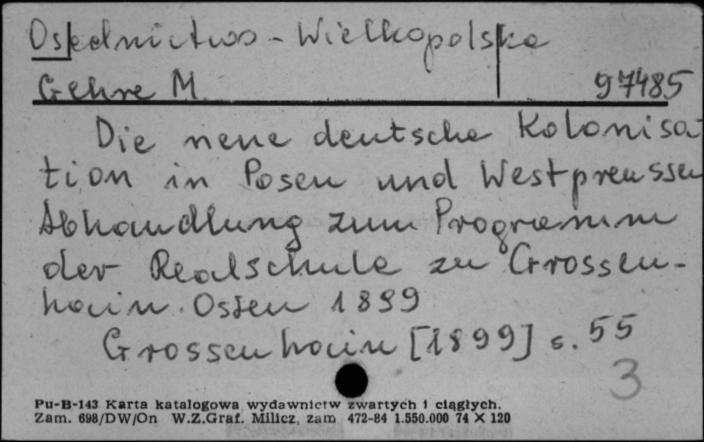 Osadnictwo - Wielkopolska
Gehre M. 97485
Die neue deutsche Kolonisa-
tion in Posen und Westpreussen
Abhandlung zum Programm
der Realschule zu Grossen-
hain. Osten 1899
Grossenhain [1899] s. 55
3
Pu-B-143 Karta katalogowa wydawnictw zwartych i ciągłych.
Zam. 698/DW/On W.Z.Graf. Milicz, zam 472-84 1.550.000 74 X 120